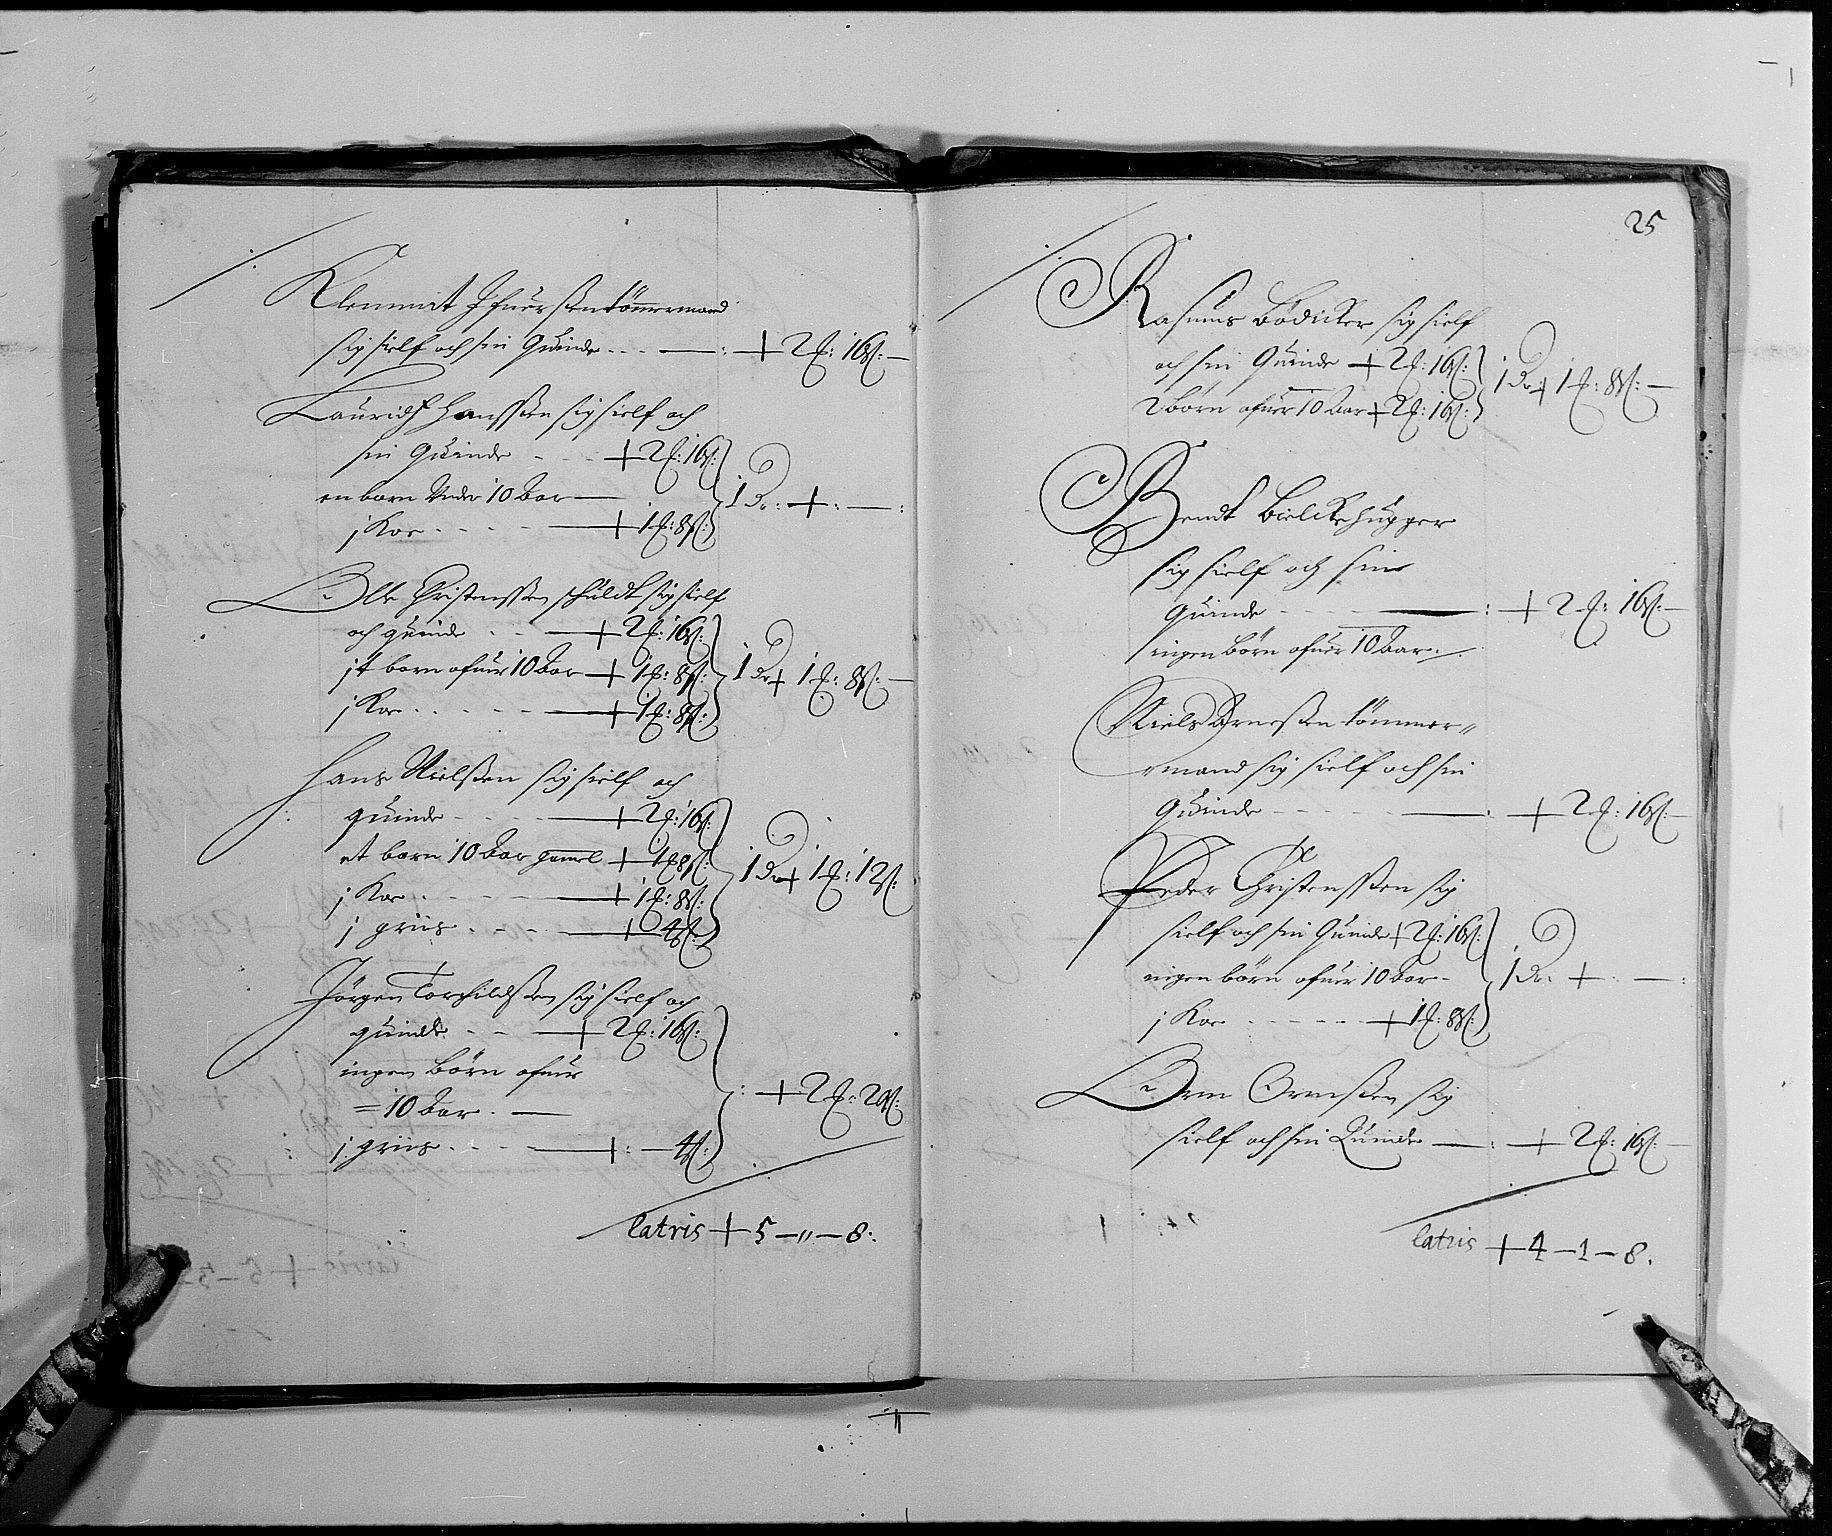 Klemmit Ifuersen tömmermand
sig sielf och sin Quinde - - - — : + 2 ℔: 16 ß: —
Lauridtz Hanssen sig sielf och
sin Quinde - - - + 2 ℔: 16 ß:
en barn Under 10 Aar —
j Koe - - - - — + 1 ℔: 8 ß:
1 Dr: + : — :
Olle Christenssen schuldt sig sielf
och quinde - - — + 2 ℔: 16 ß:
jt barn ofuer 10 Aar — + 1 ℔: 8 ß:
j Koe - - - - — + 1 ℔: 8 ß:
1 Dr + 1 ℔: 8 ß: —
Hans Nielssen sig sielf och
quinde - - - — + 2 ℔: 16 ß:
et barn 10 Aar gamel + 1 ℔ 8 ß:
j Koe - - - - — + 1 ℔: 8 ß:
j griis - - - - — + 4 ß:
1 Dr + 1 ℔: 12 ß:
Jörgen Torchildssen sig sielf och
quinde - - — + 2 ℔: 16 ß:
ingen börn ofuer
= 10 Aar. —
j. griis - - - — + : — 4 ß:
: + 2 ℔: 20 ß:
latris + 5 — „ — 8:
25
Rasmus Bödicker sig sielf
och sin Quinde + 2 ℔: 16 ß:
2 börn ofuer 10 Aar + 2 ℔: 16 ß:
1 Dr + 1 ℔: 8 ß: —
Bendt Bielckehugger
sig sielf och sin
Quinde - - - - — : + 2 ℔: 16 ß: —
ingen börn ofuer 10 Aar. —
Niels Arnessen tömmer„
mand sig sielf och sin
Quinde - - - - — : + 2 ℔: 16 ß: —
Peder Christenssen sig
sielf och sin Quinde + 2 ℔: 16 ß:
ingen börn ofuer 10 Aar -
j Koe - - - - - + 1 ℔: 8 ß:
1 Dr. + : — :
Orm Ormssen sig
sielf och sin Quinde — : + 2 ℔: 16 ß: —
latris + 4 — 1 — 8.